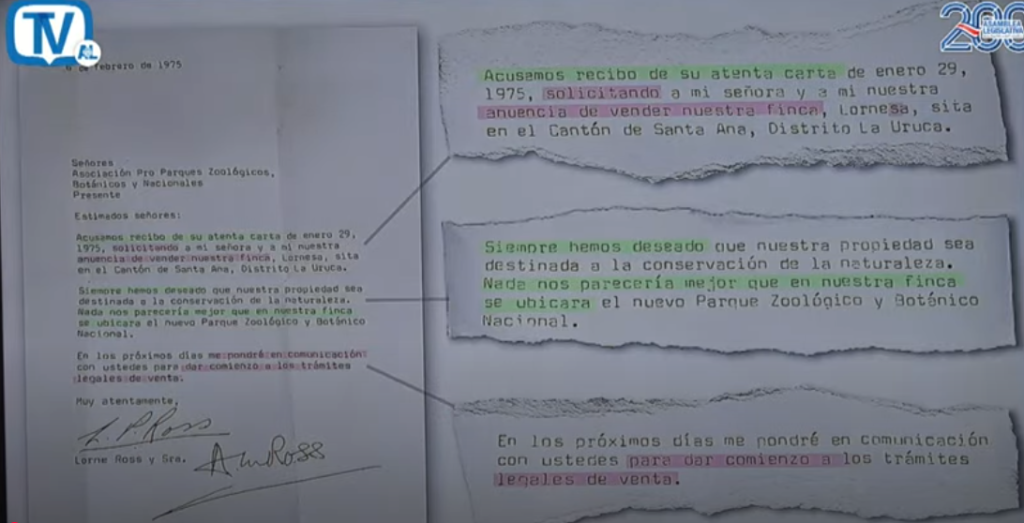 TV
AL
200
ASAMBLEA
LEGISLATIVA
6 de febrero de 1975
Señores
Asociación Pro Parques Zoológicos,
Botánicos y Nacionales
Presente
Estimados señores:
Acusamos recibo de su atenta carta de enero 29,
1975, solicitando a mi señora y a mi nuestra
anuencia de vender nuestra finca, Lornesa, sita
en el Cantón de Santa Ana, Distrito La Uruca.
Siempre hemos deseado que nuestra propiedad sea
destinada a la conservación de la naturaleza.
Nada nos parecería mejor que en nuestra finca
se ubicara el nuevo Parque Zoológico y Botánico
Nacional.
En los próximos días me pondré en comunicación
con ustedes para dar comienzo a los trámites
legales de venta.
Muy atentamente,
L. P. Ross
Lorne Ross y Sra.
Acusamos recibo de su atenta carta de enero 29,
1975, solicitando a mi señora y a mi nuestra
anuencia de vender nuestra finca, Lornesa, sita
en el Cantón de Santa Ana, Distrito La Uruca.
Siempre hemos deseado que nuestra propiedad sea
destinada a la conservación de la naturaleza.
Nada nos parecería mejor que en nuestra finca
se ubicara el nuevo Parque Zoológico y Botánico
Nacional.
En los próximos días me pondré en comunicación
con ustedes para dar comienzo a los trámites
legales de venta.